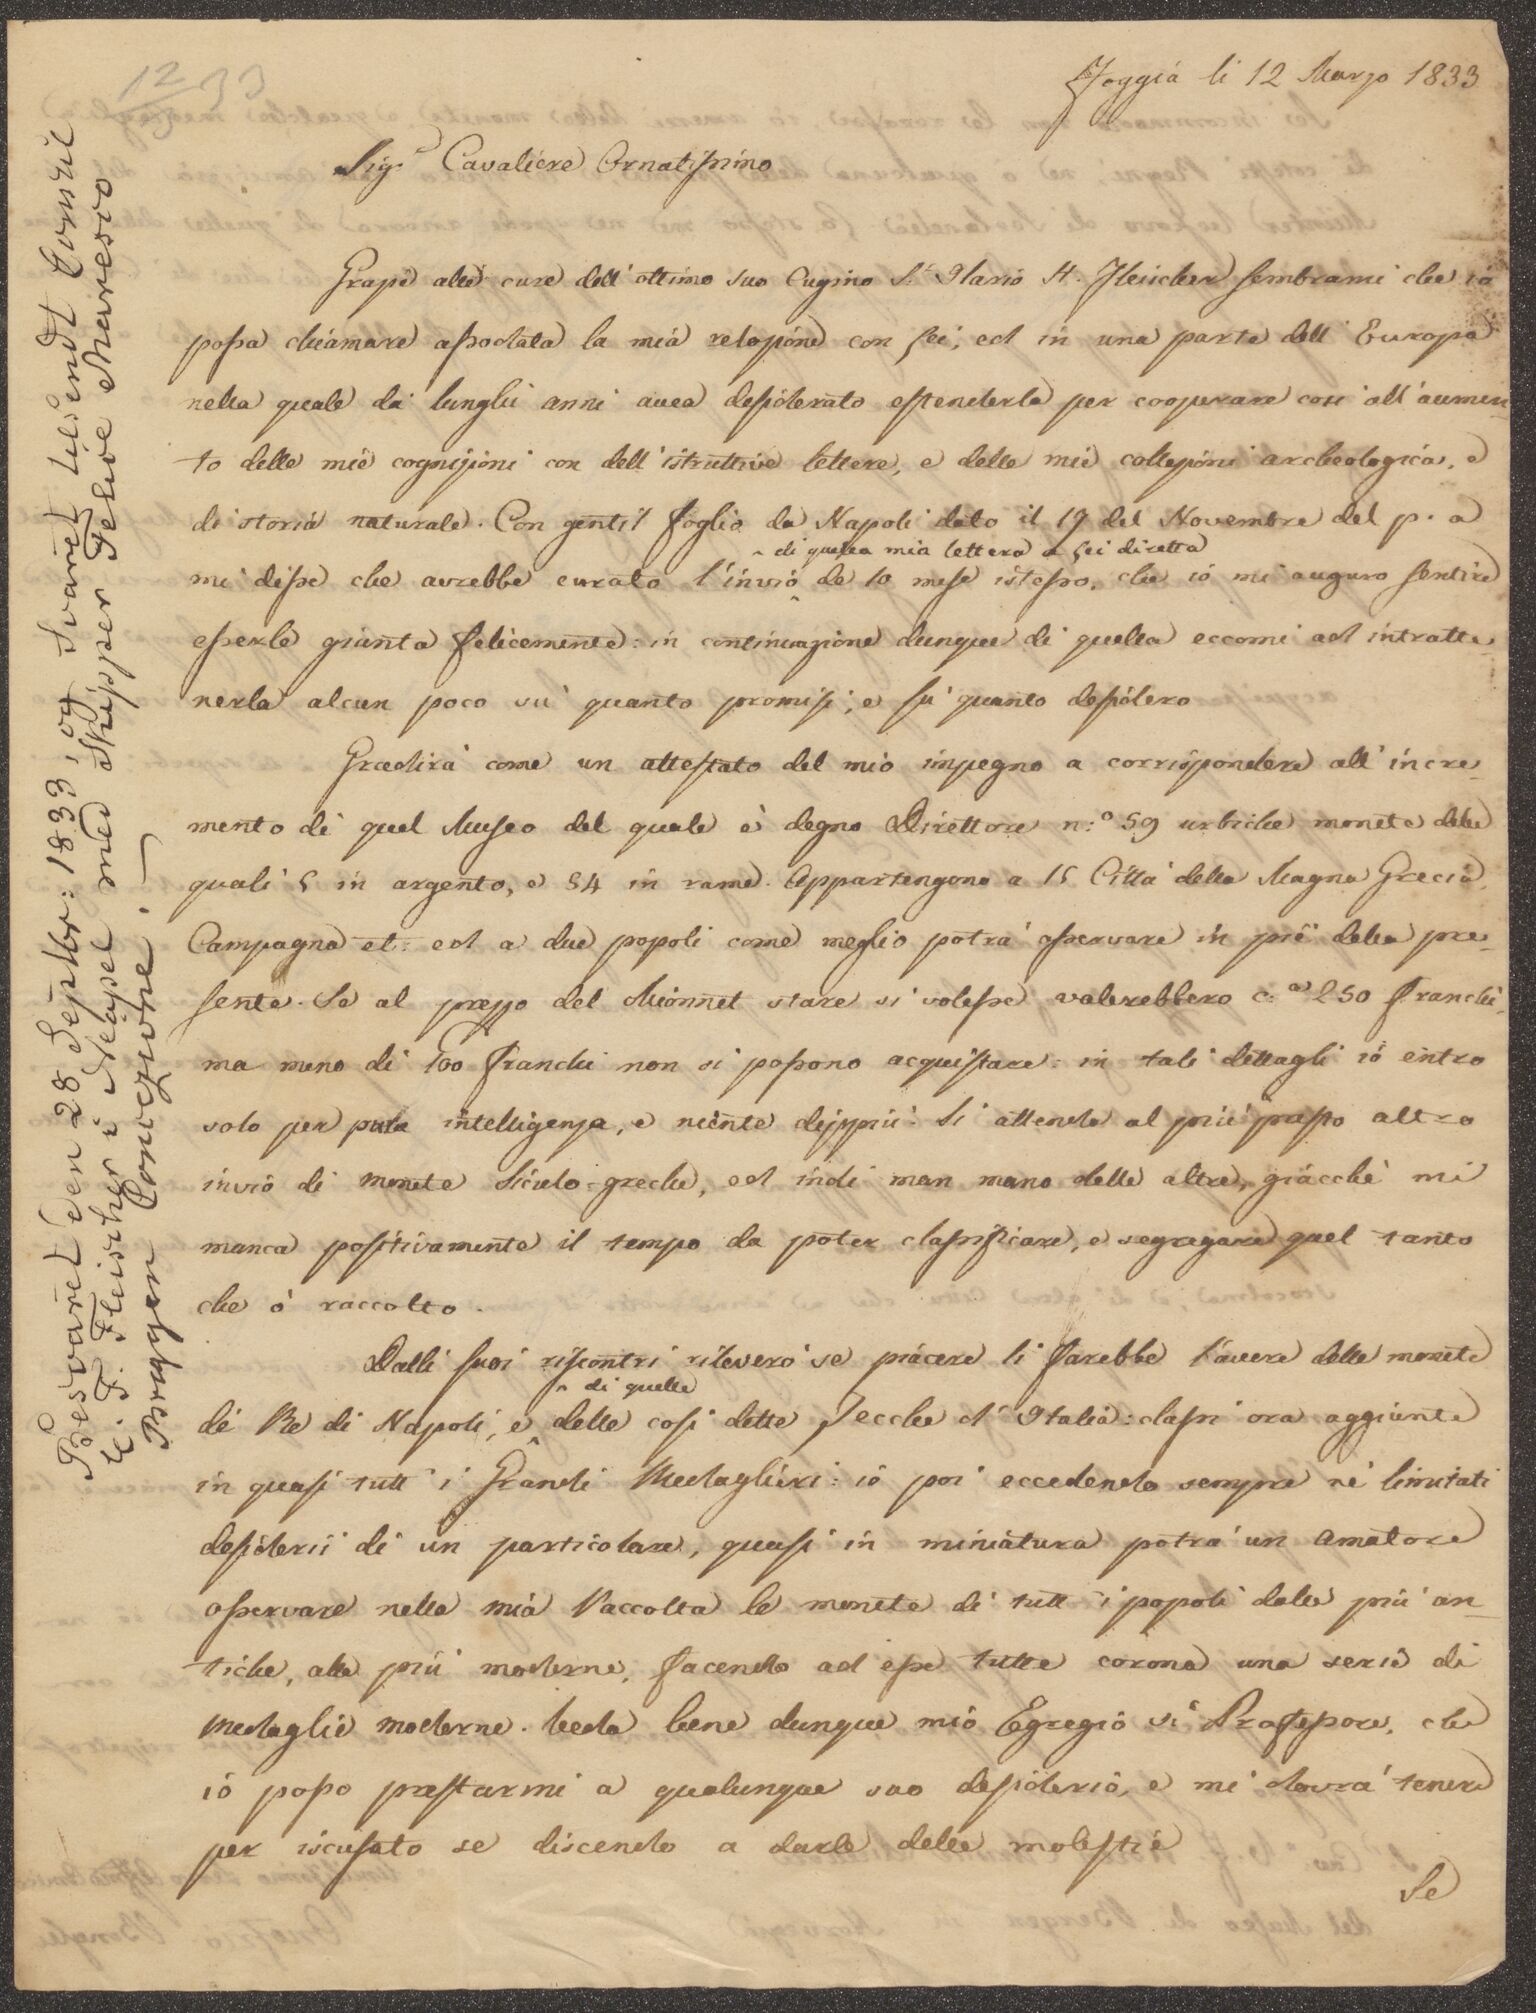 12 33
Foggia li 12 Marzo 1833
Sigr Cavaliere Ornatissimo
Grazie alle cure dell' ottimo suo Cugino S.r Ilario H. Fleischer sembrami che io
possa chiamare assodata la mia relazione con Lei, ed in una parte dell' Europa
nella quale da lunghi anni avea desiderato estenderla per cooperare così all' aumen-
to delle mie cognizioni con dell' istruttive lettere, e delle mie collezioni archeologica, e
di storia naturale. Con gentil foglio da Napoli dato il 19 del Novembre del p. a
di quella mia lettera a Lei diretta
mi disse che avrebbe curato l' invio de 10 mese istesso, che io mi auguro sentire
esserle giunta felicemente: in continuazione dunque di quella eccomi ad intratte-
nerla alcun poco su' quanto promisi, e su' quanto desidero
Gradirà come un attestato del mio impegno a corrispondere all' incre-
mento di quel Museo del quale è degno Direttore n:o 59 urbiche monete delle
quali 5 in argento, e 54 in rame. Appartengono a 15 Città della Magna Grecia,
Campagna et: ed a due popoli come meglio potrà osservare in piè della pre-
sente. Se al prezzo del Mionnet stare si volesse valerebbero c.a 250 franchi,
ma meno di 100 franchi non si possono acquistare: in tali dettagli io entro
solo per pula intelligenza, e niente dippiù: Si attenda al più presto altro
invio di monete Siculo-greche, ed indi man mano delle altre, giacchè mi
manca positivamente il tempo da poter classificare, e segregare quel tanto
che ò raccolto.
Dalli suoi riscontri rileverò se piacere li sarebbe l' avere delle monete
di quelle
dé Re di Napoli, e delle così dette Zecche d' Italia: classi ora aggiunte
in quasi tutt' i Grandi Medaglieri: io poi eccedendo sempre né limitati
desiderii di un particolare, quasi in miniatura potrà un amatore
osservare nella mia Raccolta le monete di tutt' i popoli dalle più an-
tiche, alle più moderne, facendo ad esse tutte corona una serie di
medaglie moderne. Veda bene dunque mio Egregio Si.r Professore, che
io posso prestarmi a qualunque suo desiderio, e mi dovrà tenere
per iscusato se discendo a darle delle molestie
Se
Besvaret den 28 Septbr: 1833, og Svaret tilsendt Consul
C. F. Fleischer i Neapel med Skipper Felice Maresco
Bragzen Convezione. —